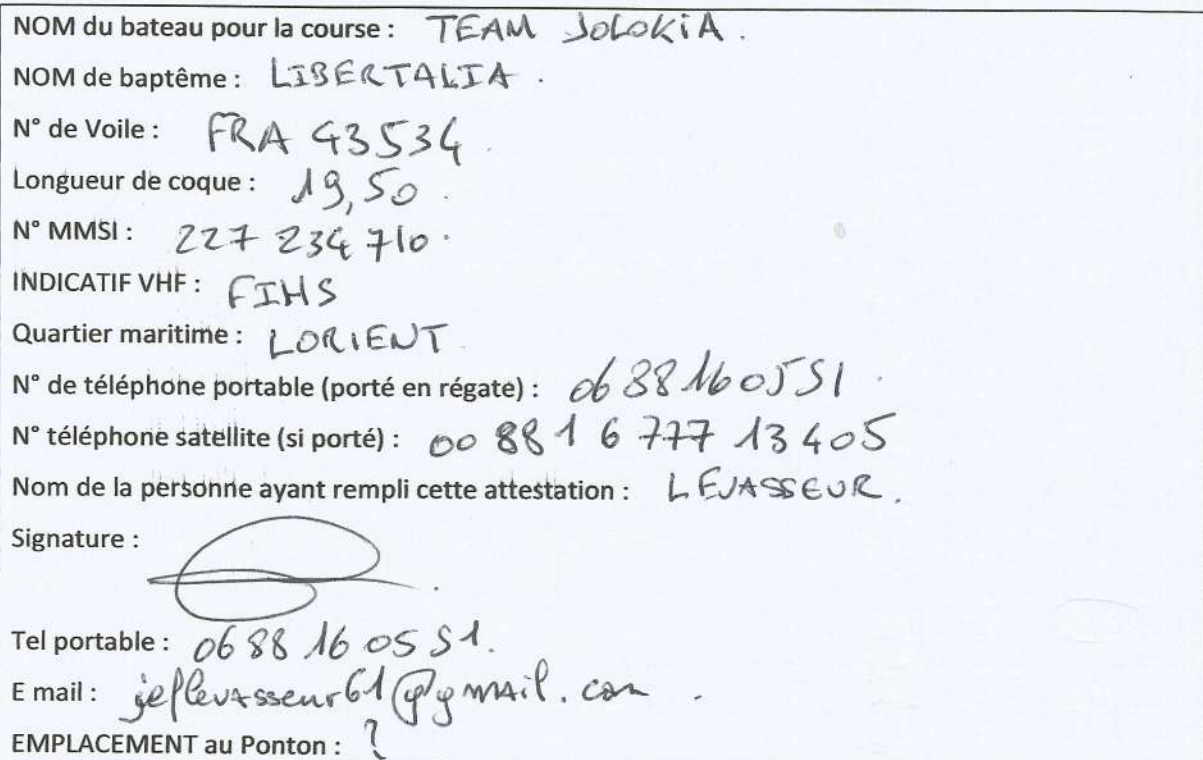 NOM du bateau pour la course : TEAM JOLOKiA.
NOM de baptême : LIBERTALIA.
N° de Voile : FRA 43534.
Longueur de coque : 19,50.
N° MMSI : 227 234 710.
INDICATIF VHF : FIHS
Quartier maritime : LORIENT
N° de téléphone portable (porté en régate) : 06 88 16 05 51.
N° téléphone satellite (si porté) : 00 88 1 6 777 13 405
Nom de la personne ayant rempli cette attestation : LEVASSEUR.
Signature :
Tel portable : 06 88 16 05 51.
E mail : jeflevasseur61@gmail.com.
EMPLACEMENT au Ponton : ?